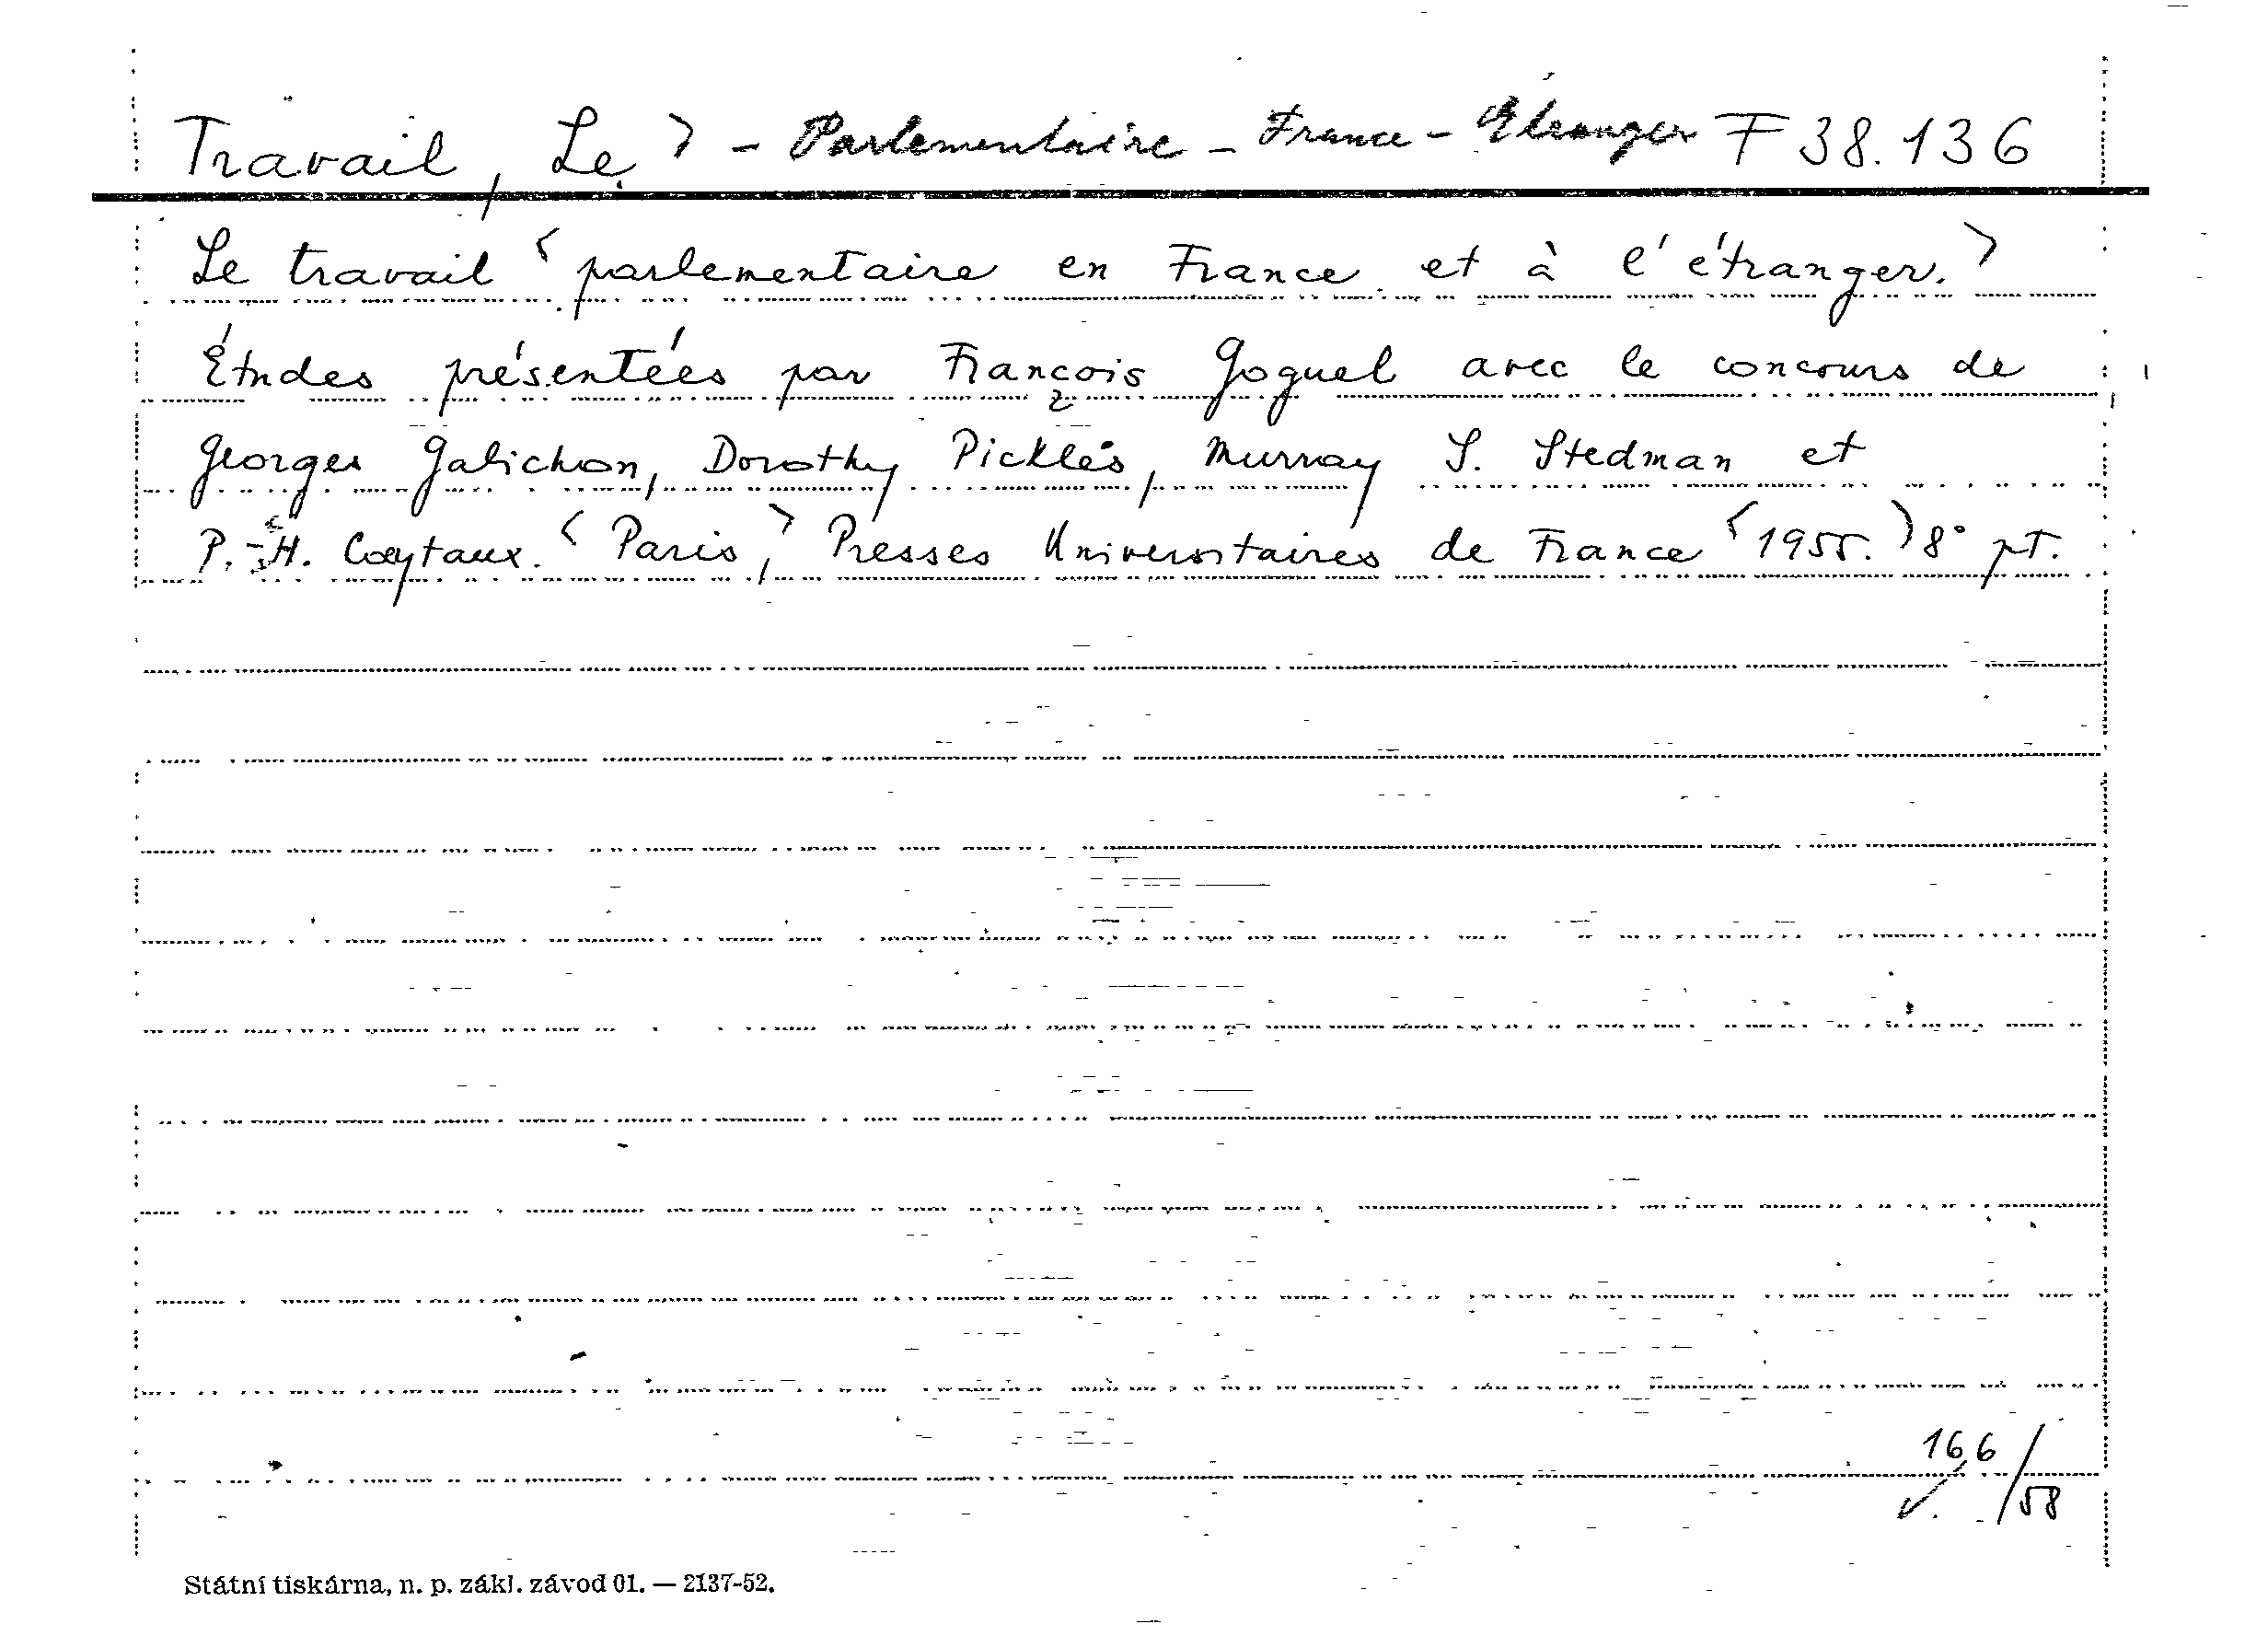 Travail, Le > - Parlementaire - France - Etranger F 38.136
Le travail < parlementaire en France et à l'étranger. >
Études présentées par François Goguel avec le concours de
Georges Galichon, Dorothy Pickles, Murray S. Stedman et
P.-H. Coeytaux. < Paris, > Presses Universitaires de France < 1955. > 8° pt.
166/58
Státní tiskárna, n. p. zákl. závod 01. — 2137-52.